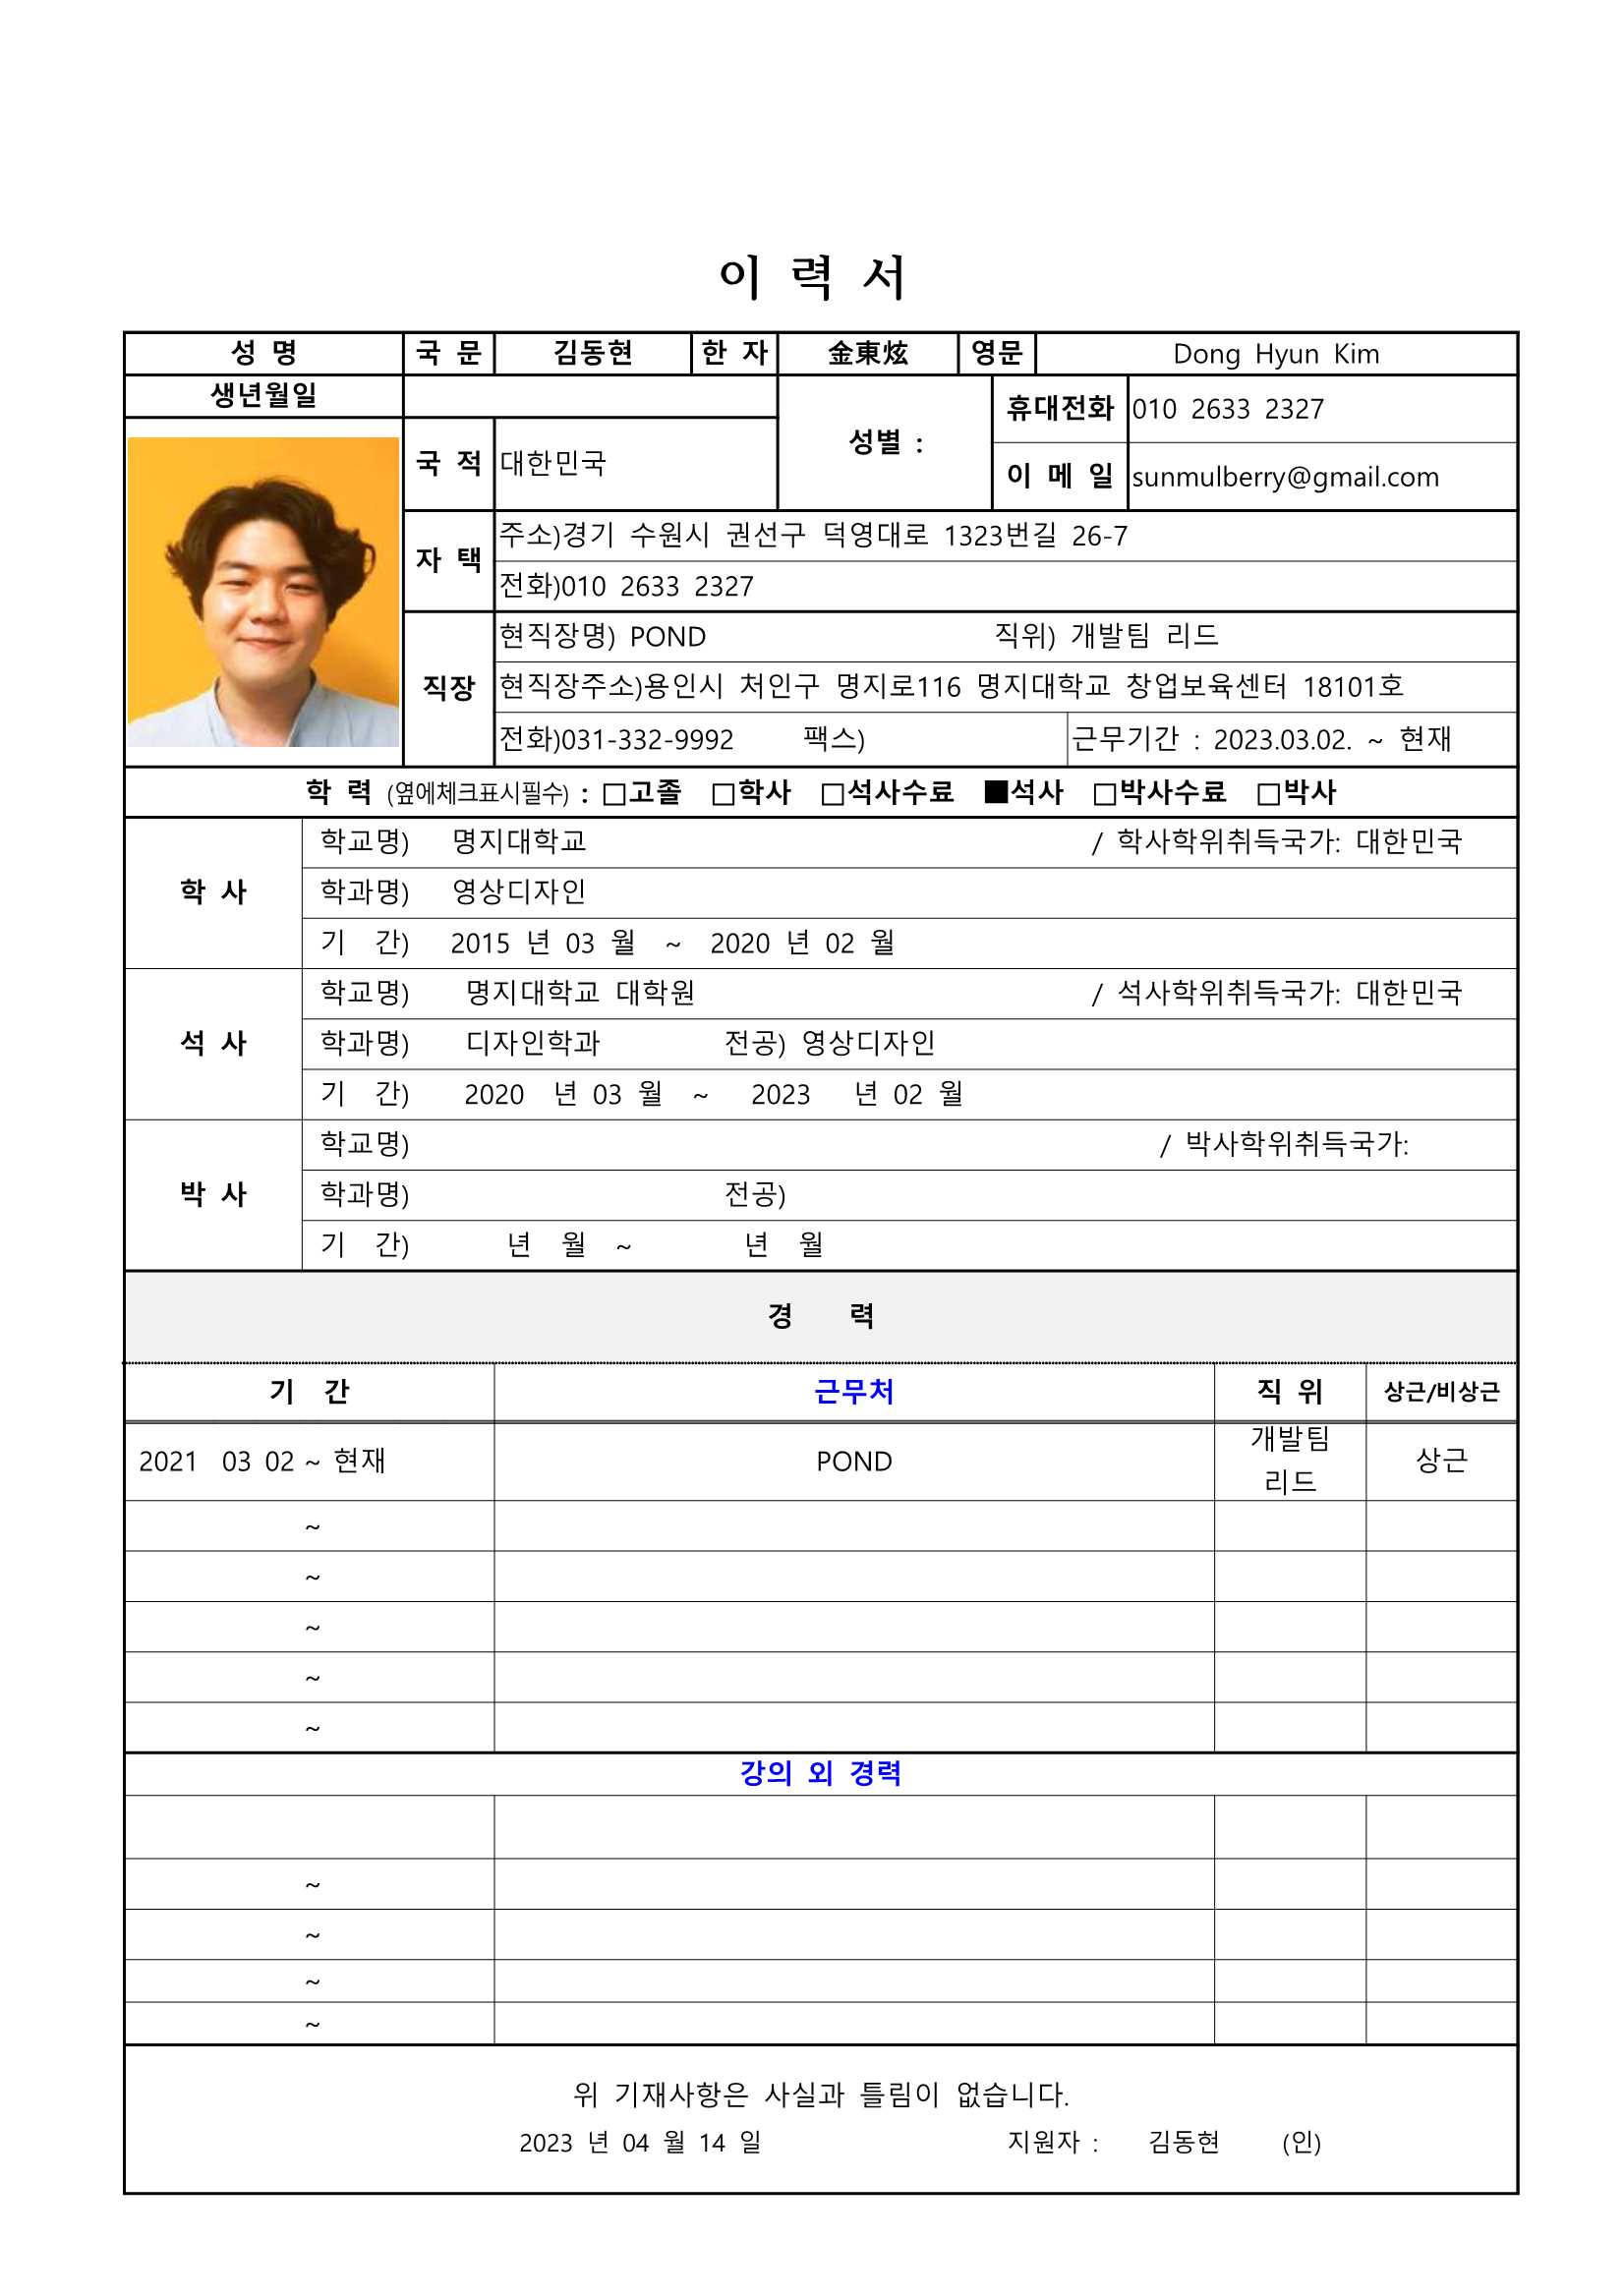 이 력 서
성 명 국 문 김동현 한 자 金東炫 영문 Dong Hyun Kim
생년월일
성별 :
휴대전화 010 2633 2327
국 적 대한민국
이 메 일 sunmulberry@gmail.com
자 택
주소)경기 수원시 권선구 덕영대로 1323번길 26-7
전화)010 2633 2327
직장
현직장명) POND 직위) 개발팀 리드
현직장주소)용인시 처인구 명지로116 명지대학교 창업보육센터 18101호
전화)031-332-9992 팩스) 근무기간 : 2023.03.02. ~ 현재
학 력 (옆에체크표시필수) : □고졸 □학사 □석사수료 ■석사 □박사수료 □박사
학 사
학교명) 명지대학교 / 학사학위취득국가: 대한민국
학과명) 영상디자인
기 간) 2015 년 03 월 ~ 2020 년 02 월
석 사
학교명) 명지대학교 대학원 / 석사학위취득국가: 대한민국
학과명) 디자인학과 전공) 영상디자인
기 간) 2020 년 03 월 ~ 2023 년 02 월
박 사
학교명) / 박사학위취득국가:
학과명) 전공)
기 간) 년 월 ~ 년 월
경 력
기 간 근무처 직 위 상근/비상근
2021 03 02 ~ 현재 POND 개발팀 리드 상근
~
~
~
~
~
강의 외 경력
~
~
~
~
위 기재사항은 사실과 틀림이 없습니다.
2023 년 04 월 14 일 지원자 : 김동현 (인)